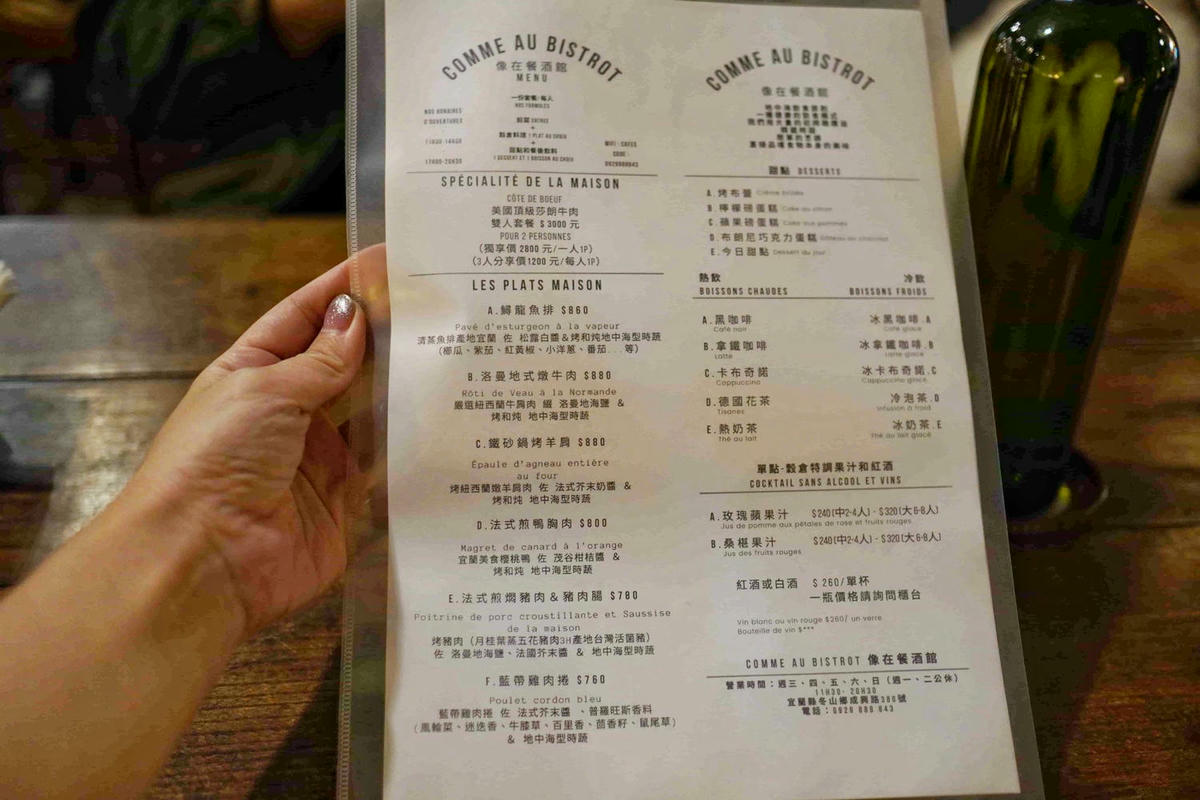 COMME AU BISTROT
像在餐酒館
MENU
一份套餐/每人
NOS FORMULES
NOS HORAIRES
D'OUVERTURES
11H30-14H30
17H00-20H30
前菜 ENTRÉE
+
穀倉料理 1 PLAT AU CHOIX
+
甜點和餐後飲料
1 DESSERT ET 1 BOISSON AU CHOIX
WIFI : CAFES
CODE :
0920888843
SPÉCIALITÉ DE LA MAISON
CÔTE DE BOEUF
美國頂級莎朗牛肉
雙人套餐 $3000元
POUR 2 PERSONNES
(獨享價 2800 元/一人1P)
(3人分享價1200 元/每人1P)
LES PLATS MAISON
A.鱘龍魚排 $860
Pavé d'esturgeon à la vapeur
清蒸魚排產地宜蘭 佐 松露白醬&烤和炖地中海型時蔬
(櫛瓜、紫茄、紅黃椒、小洋蔥、番茄...等)
B.洛曼地式燉牛肉 $880
Rôti de Veau à la Normande
嚴選紐西蘭牛肩肉 綴 洛曼地海鹽 &
烤和炖 地中海型時蔬
C.鐵砂鍋烤羊肩 $880
Épaule d'agneau entière
au four
烤紐西蘭嫩羊肩肉 佐 法式芥末奶醬 &
烤和炖 地中海型時蔬
D.法式煎鴨胸肉 $800
Magret de canard à l'orange
宜蘭美食櫻桃鴨 佐 茂谷柑桔醬 &
烤和炖 地中海型時蔬
E.法式煎燜豬肉&豬肉腸 $780
Poitrine de porc croustillante et Saussise
de la maison
烤豬肉（月桂葉蒸五花豬肉3H產地台灣活菌豬）
佐 洛曼地海鹽、法國芥末醬 & 地中海型時蔬
F.藍帶雞肉捲 $760
Poulet cordon bleu
藍帶雞肉捲 佐 法式芥末醬 、普羅旺斯香料
(風輪菜、迷迭香、牛膝草、百里香、茴香籽、鼠尾草)
& 地中海型時蔬
COMME AU BISTROT
像在餐酒館
地中海飲食原則
甜點 DESSERTS
A.烤布蕾 Crème brûlée
B.檸檬磅蛋糕 Cake au citron
C.蘋果磅蛋糕 Cake aux pommes
D.布朗尼巧克力蛋糕 Gâteau au chocolat
E.今日甜點 Dessert du jour
熱飲 冷飲
BOISSONS CHAUDES BOISSONS FROIDS
A.黑咖啡 冰黑咖啡.A
Café noir Café glacé
B.拿鐵咖啡 冰拿鐵咖啡.B
Latte Latte glacé
C.卡布奇諾 冰卡布奇諾.C
Cappuccino Cappuccino glacé
D.德國花茶 冷泡茶.D
Tisanes Infusion à froid
E.熱奶茶 冰奶茶.E
Thé au lait Thé au lait glacé
單點-穀倉特調果汁和紅酒
COCKTAIL SANS ALCOOL ET VINS
A.玫瑰蘋果汁 $240(中2-4人) - $320(大6-8人)
Jus de pomme aux pétales de rose et fruits rouges
B.桑椹果汁 $240(中2-4人) - $320(大6-8人)
Jus des fruits rouges
紅酒或白酒 $ 260/單杯
一瓶價格請詢問櫃台
Vin blanc ou vin rouge $260/ un verre
Bouteille de vin $***
COMME AU BISTROT 像在餐酒館
營業時間：週三、四、五、六、日（週一、二公休）
11H30- 20H30
宜蘭縣冬山鄉成興路386號
電話：0920 888 843